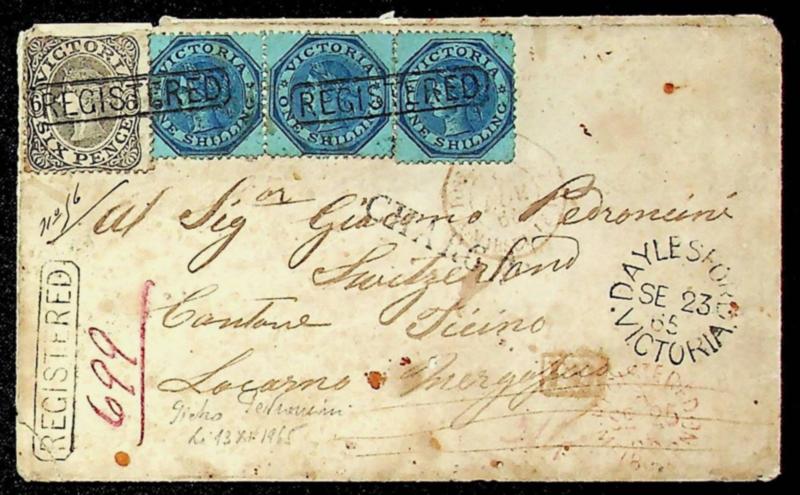 VICTORIA
6 6
SIX PENCE
VICTORIA
ONE SHILLING
VICTORIA
ONE SHILLING
VICTORIA
ONE SHILLING
REGISTERED
REGISTERED
No 56
Al Sigor Giacomo Pedroncini
CHARGÉ
Switzerland
Cantone Ticino
Locarno
REGISTERED
699
DAYLESFORD
SE 23
65
VICTORIA
Pedroncini
li 13 XII 1965